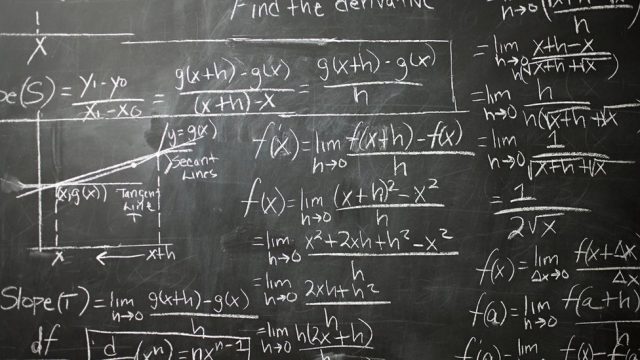 Find the derivative
x
pe(S) = y₁-y₀ / x₁-x₀ = g(x+h)-g(x) / (x+h)-x = g(x+h)-g(x) / h
y=g(x)
Secant
Lines
(x,g(x))
Tangent
Line
T
x ← x+h
Slope(T) = lim h→0 g(x+h)-g(x) / h
df
d (xⁿ) = nxⁿ⁻¹
f(x) = lim h→0 f(x+h)-f(x) / h
f(x) = lim h→0 (x+h)²-x² / h
= lim h→0 x²+2xh+h²-x² / h
= lim h→0 2xh+h² / h
= lim h→0 h(2x+h)
= lim h→0 h
= lim h→0 x+h-x / h(√x+h+√x)
= lim h→0 h / h(√x+h+√x
= lim h→0 1 / √x+h+√x
= 1 / 2√x
f(x) = lim Δx→0 f(x+Δx / Δx
f(a) = lim h→0 f(a+h) / h
= lim f(x